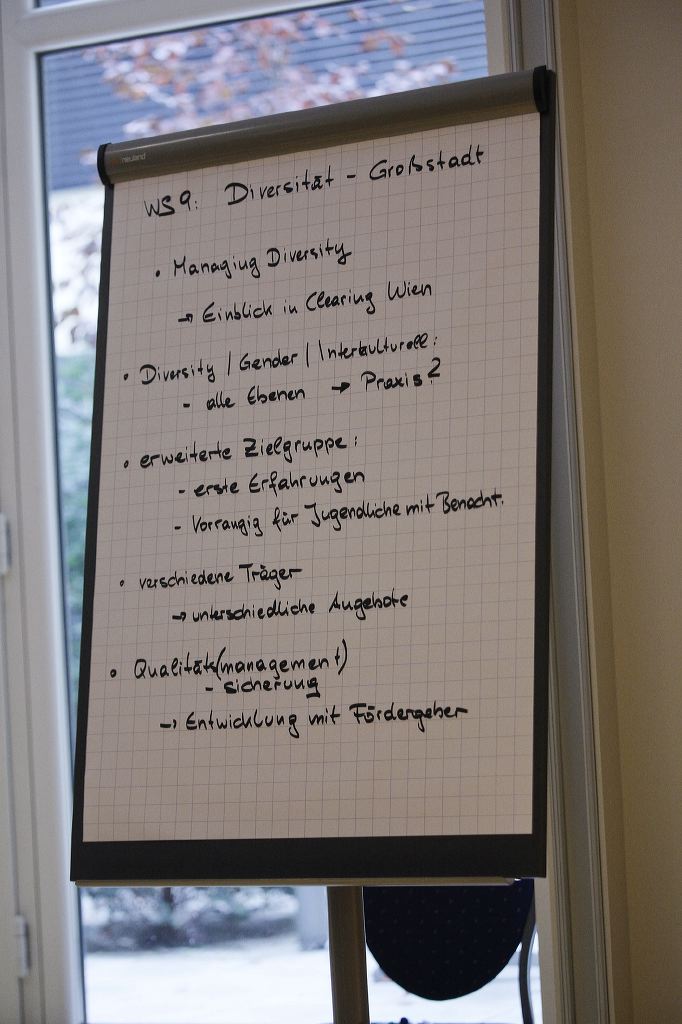 neuland
WS 9: Diversität - Großstadt
• Managing Diversity
→ Einblick in Clearing Wien
• Diversity / Gender / Interkulturell:
- alle Ebenen → Praxis?
• erweiterte Zielgruppe:
- erste Erfahrungen
- Vorrangig für Jugendliche mit Benacht.
• verschiedene Träger
→ unterschiedliche Angebote
• Qualitäts(management)
- sicherung
→ Entwicklung mit Fördergeber